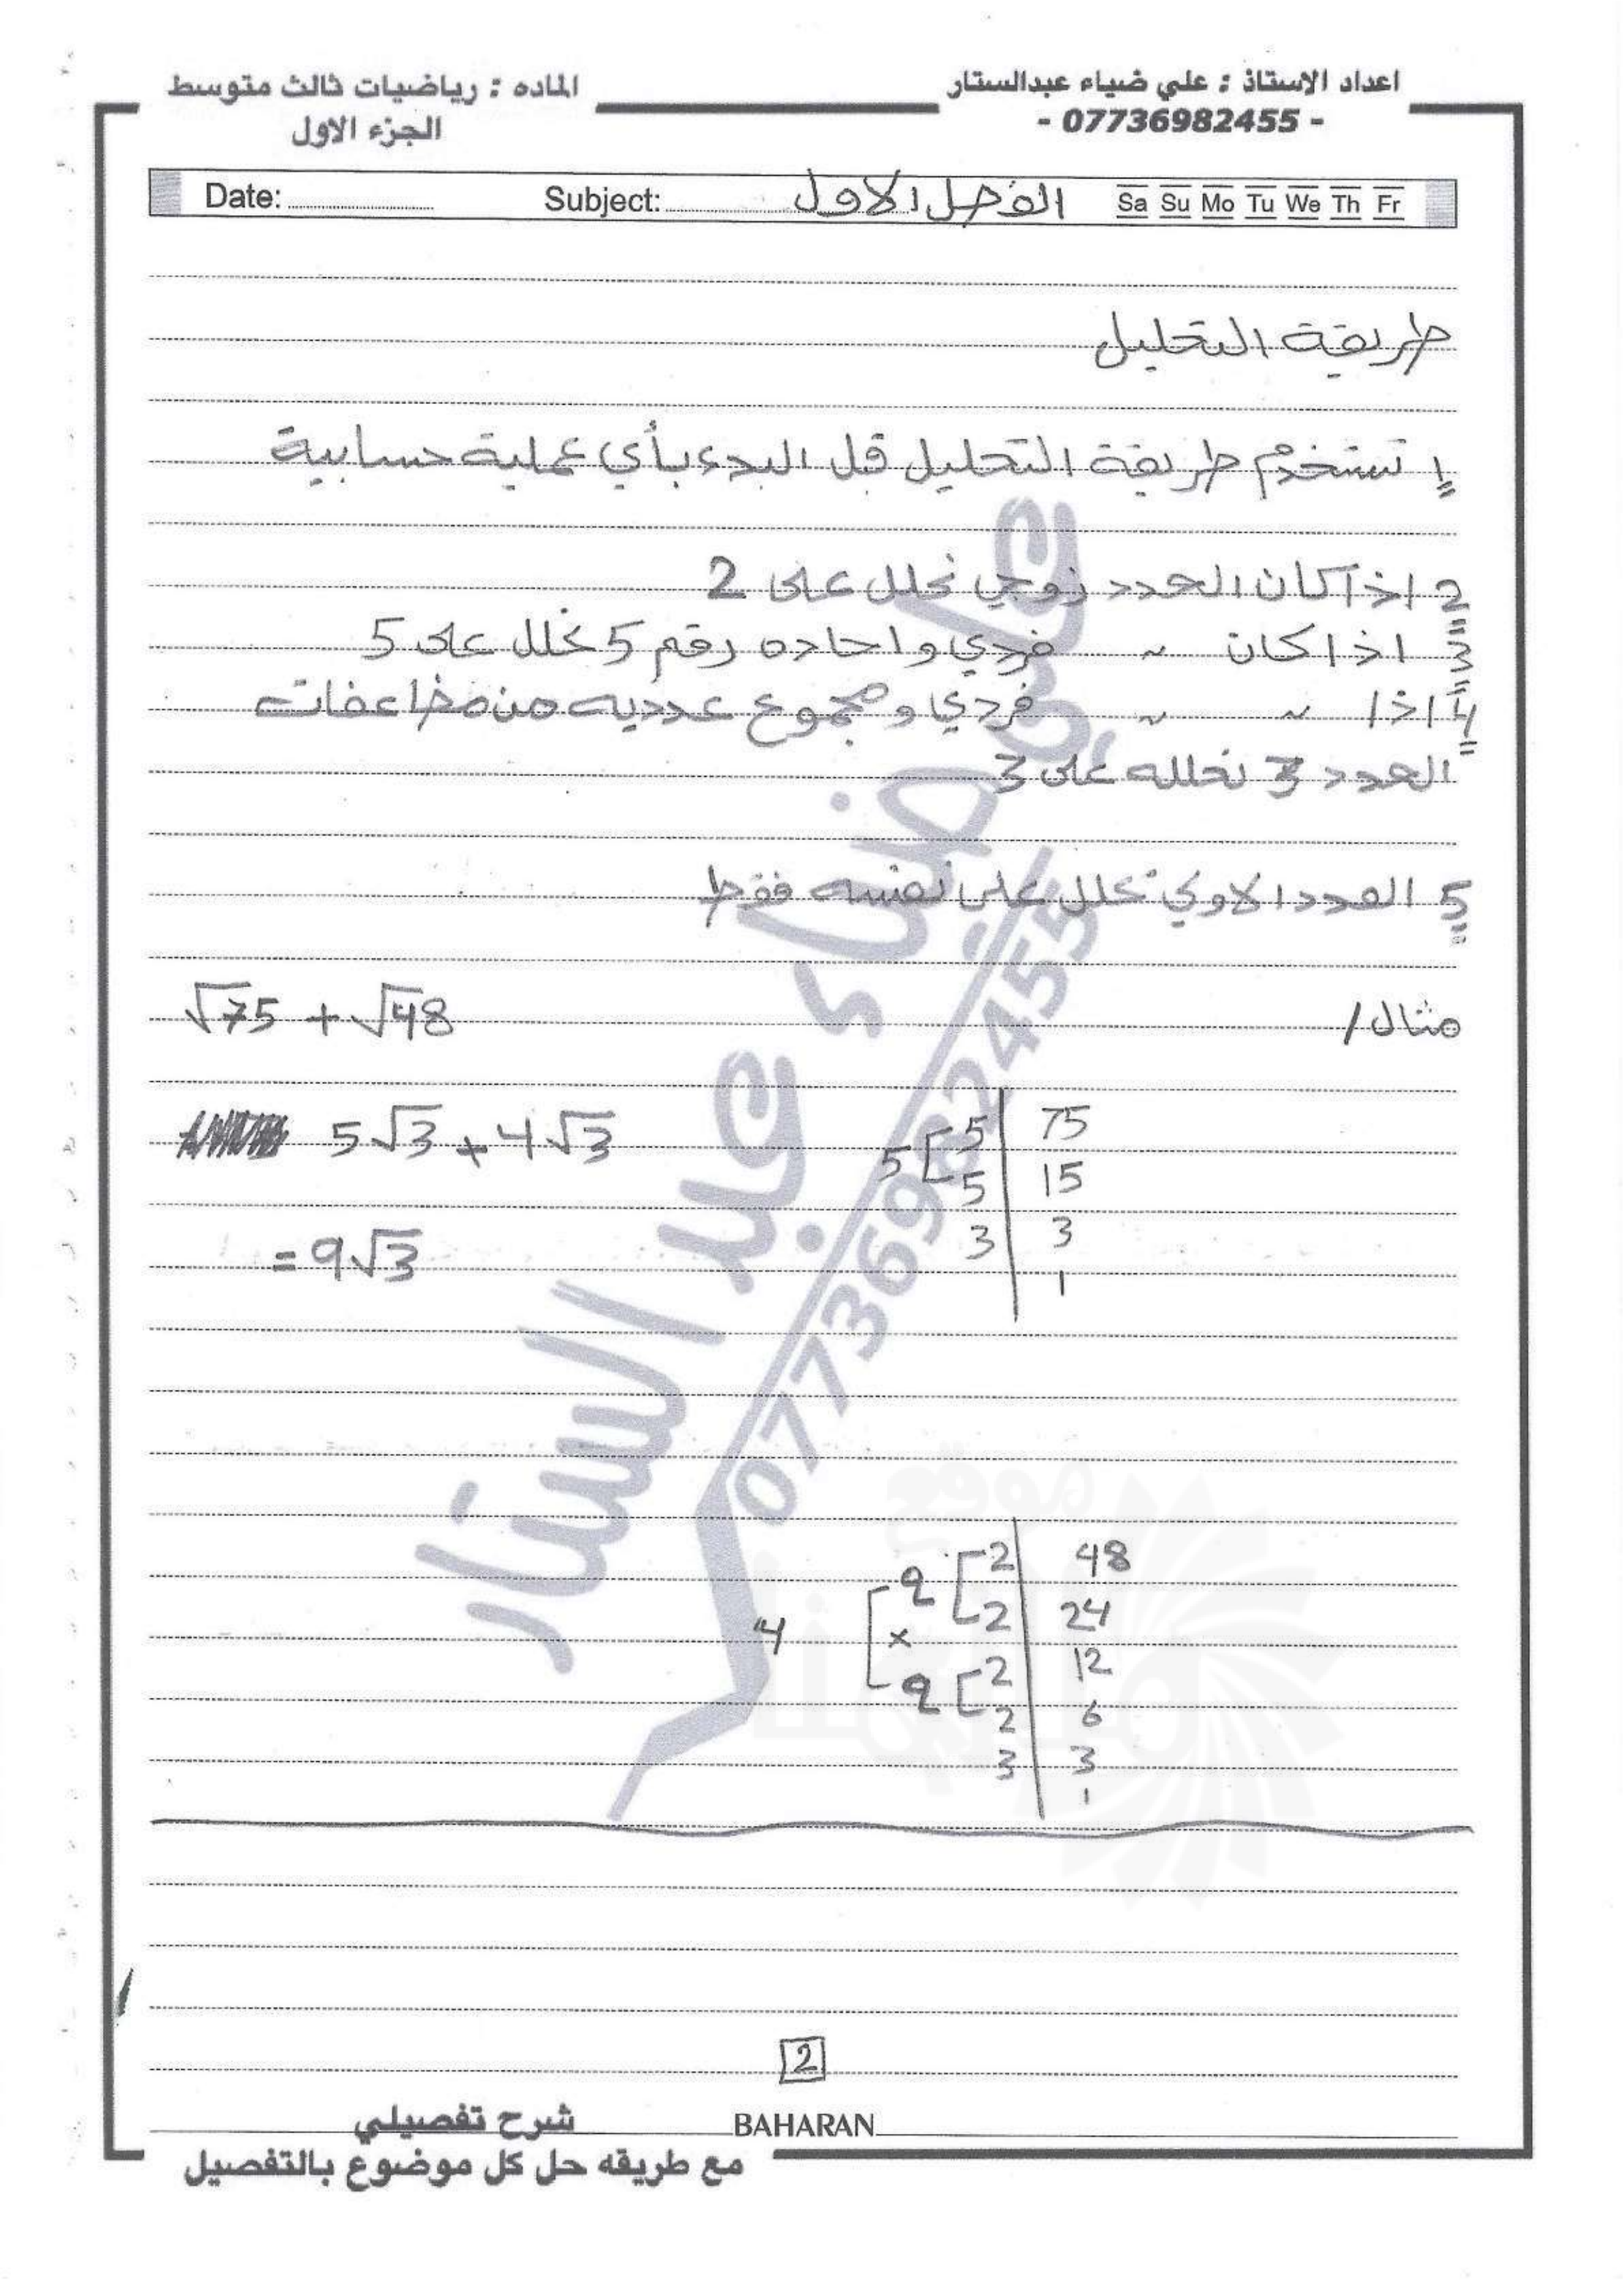 اعداد الاستاذ : علي ضياء عبدالستار
- 07736982455 -
الماده : رياضيات ثالث متوسط
الجزء الاول
Date: Subject: الفصل الاول Sa Su Mo Tu We Th Fr
طريقة التحليل
1 تستخدم طريقة التحليل قبل البدء بأي عملية حسابية
2 اذا كان العدد زوجي نحلل على 2
3 اذا كان " فردي و احاده رقم 5 نحلل على 5
4 اذا " " فردي و مجموع عدديه من مضاعفات
العدد 3 نحلله على 3
5 العدد الاولي نحلل على نفسه فقط
مثال / √75 + √48
5√3 + 4√3
= 9√3
5 [ 5 | 75
5 | 15
3 | 3
1
2 [ 2 | 48
2 | 24
4 [ ×
2 [ 2 | 12
2 | 6
3 | 3
1
علي ضياء عبد الستار
07736982455
موقع
2
BAHARAN
شرح تفصيلي
مع طريقه حل كل موضوع بالتفصيل